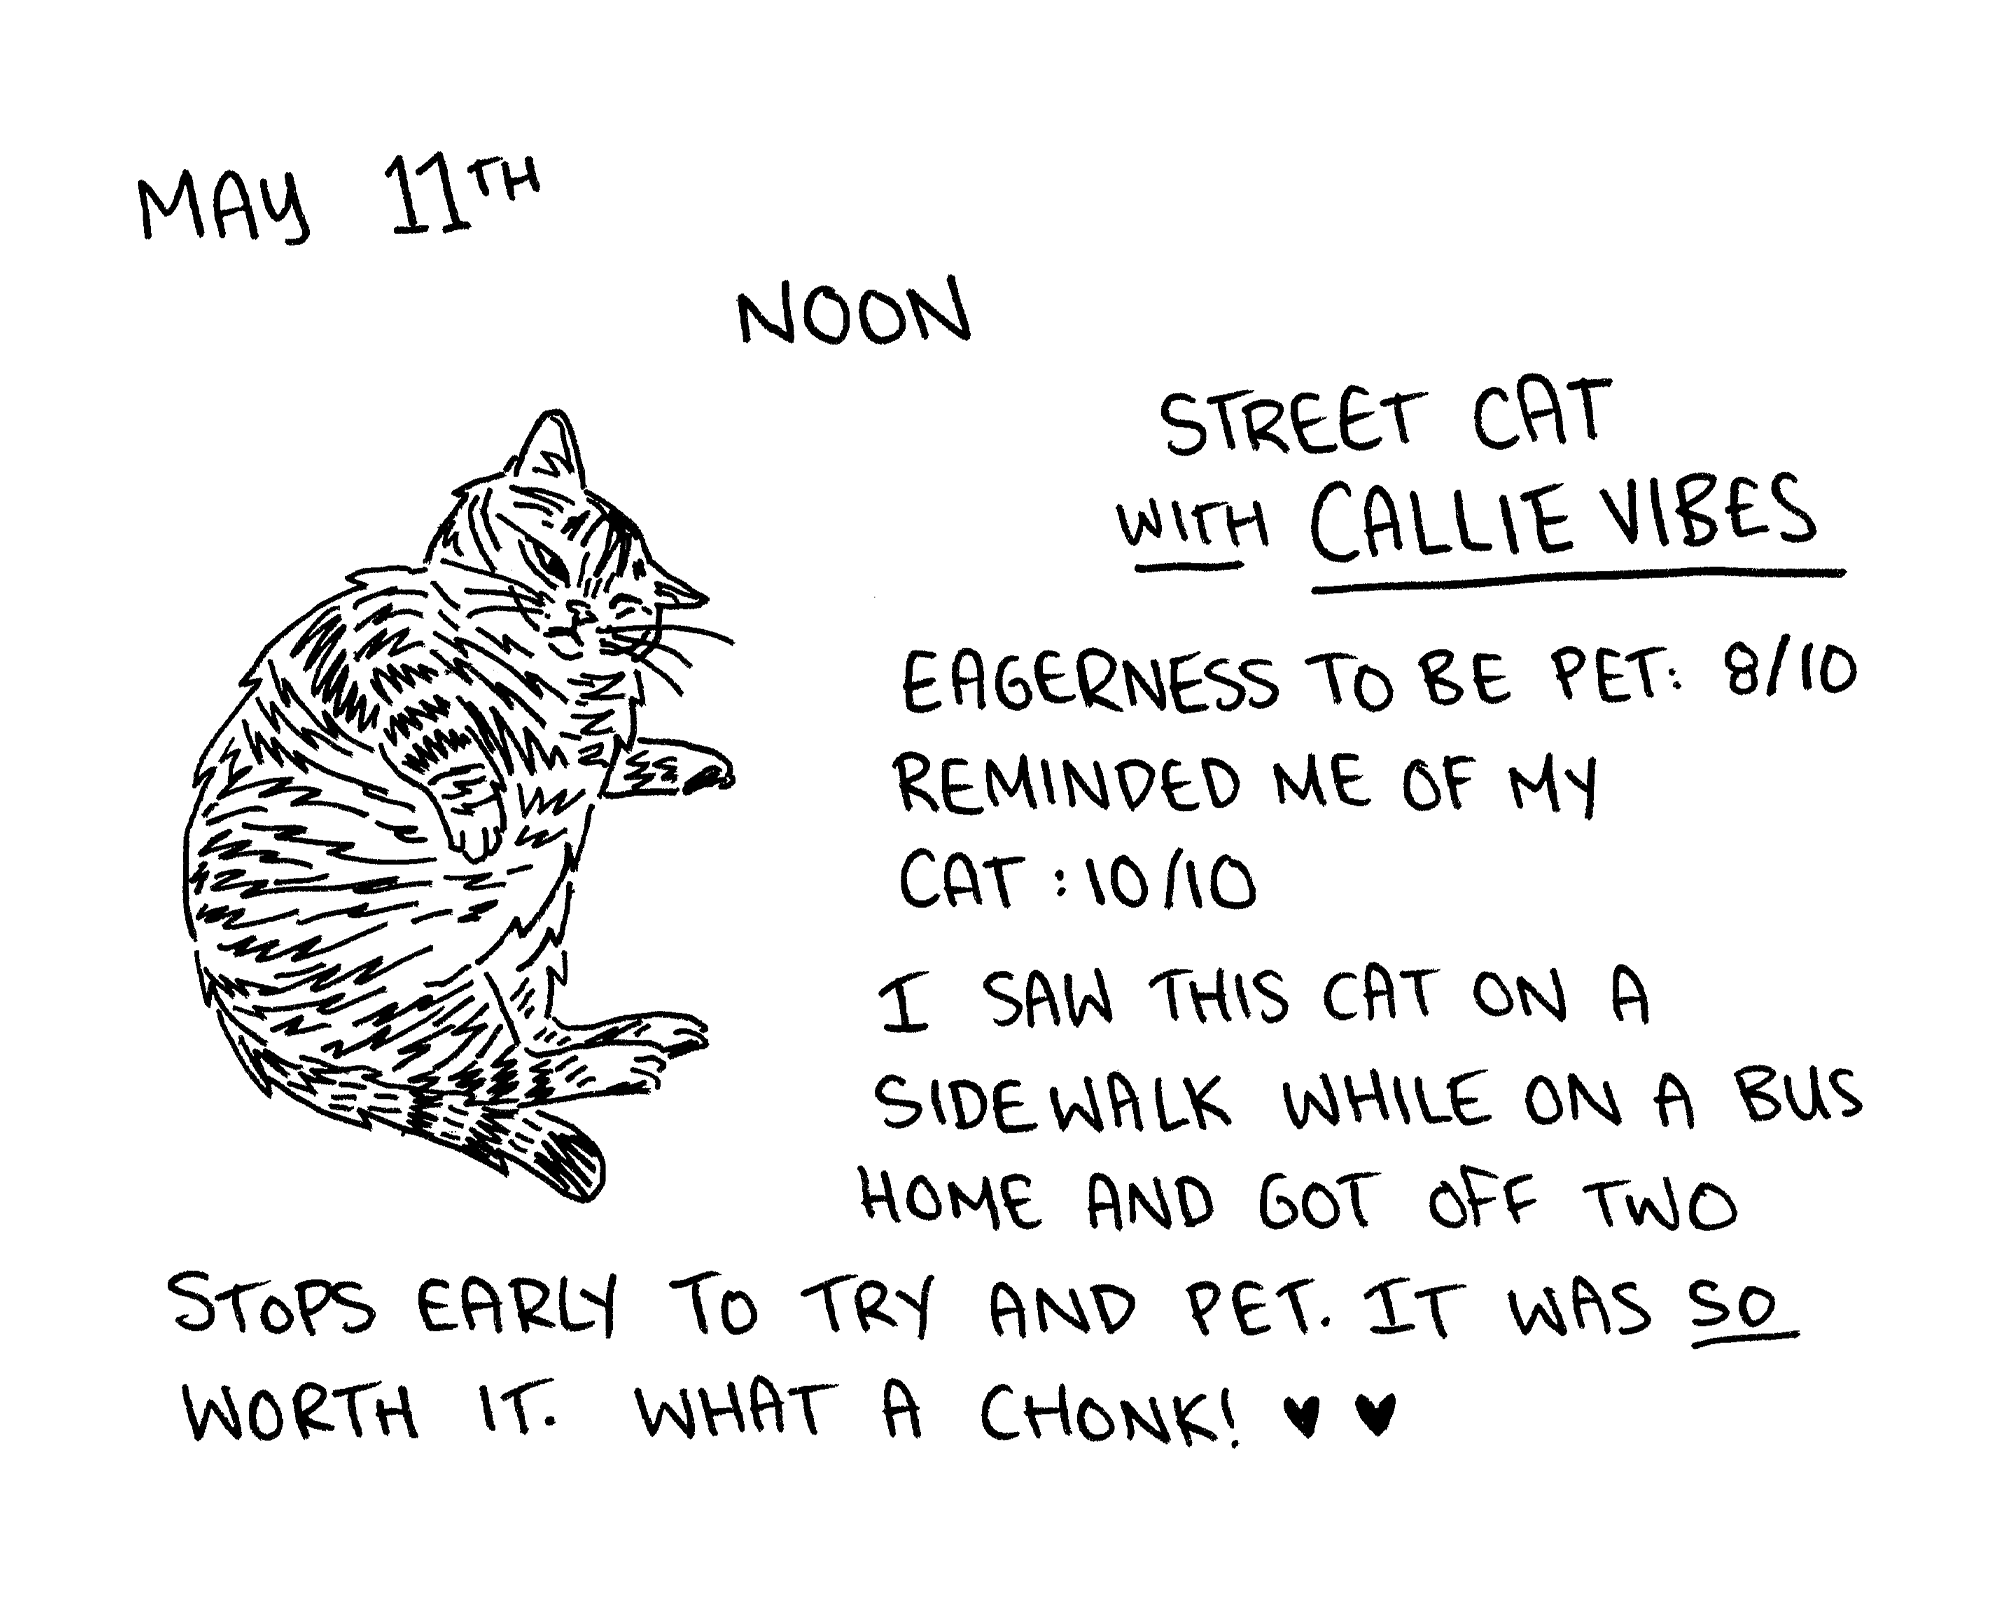 MAY 11TH
NOON
STREET CAT
WITH CALLIE VIBES
EAGERNESS TO BE PET: 8/10
REMINDED ME OF MY
CAT : 10/10
I SAW THIS CAT ON A
SIDEWALK WHILE ON A BUS
HOME AND GOT OFF TWO
STOPS EARLY TO TRY AND PET. IT WAS SO
WORTH IT. WHAT A CHONK! ♥ ♥